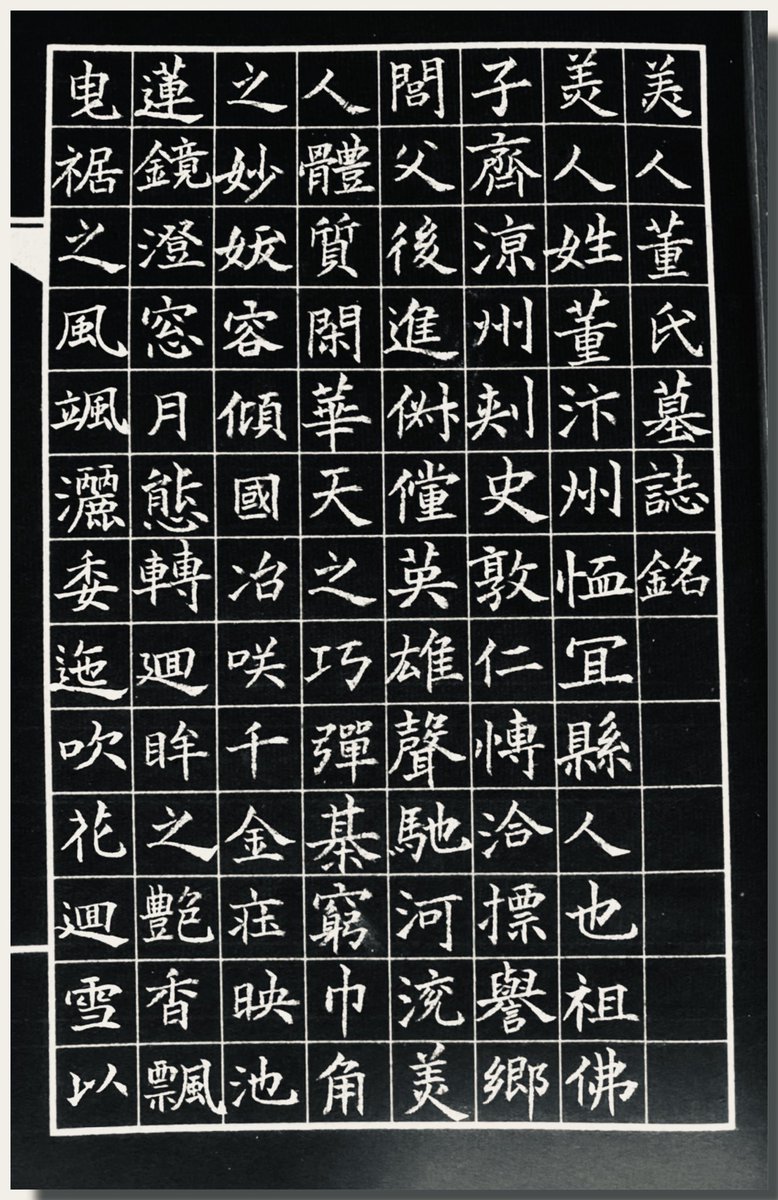 美人董氏墓誌銘
美人姓董汴州恤冝縣人也祖佛
子齊涼州刺史敦仁愽洽摽譽鄉
閭父後進俶儻英雄聲馳河㳅美
人體質閑華天之巧彈棊窮巾角
之妙妭容傾國冶咲千金疰映池
蓮鏡澄窓月態轉廻眸之艷香飄
曳裾之風颯灑委迤吹花廻雪以